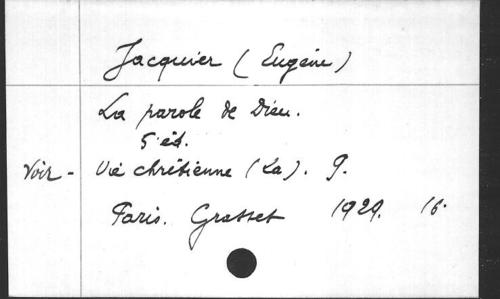 Jacquier (Eugène)
La parole de Dieu.
5 éd.
Voir - Vie chrétienne (La). 9.
Paris. Grasset 1929. 16.